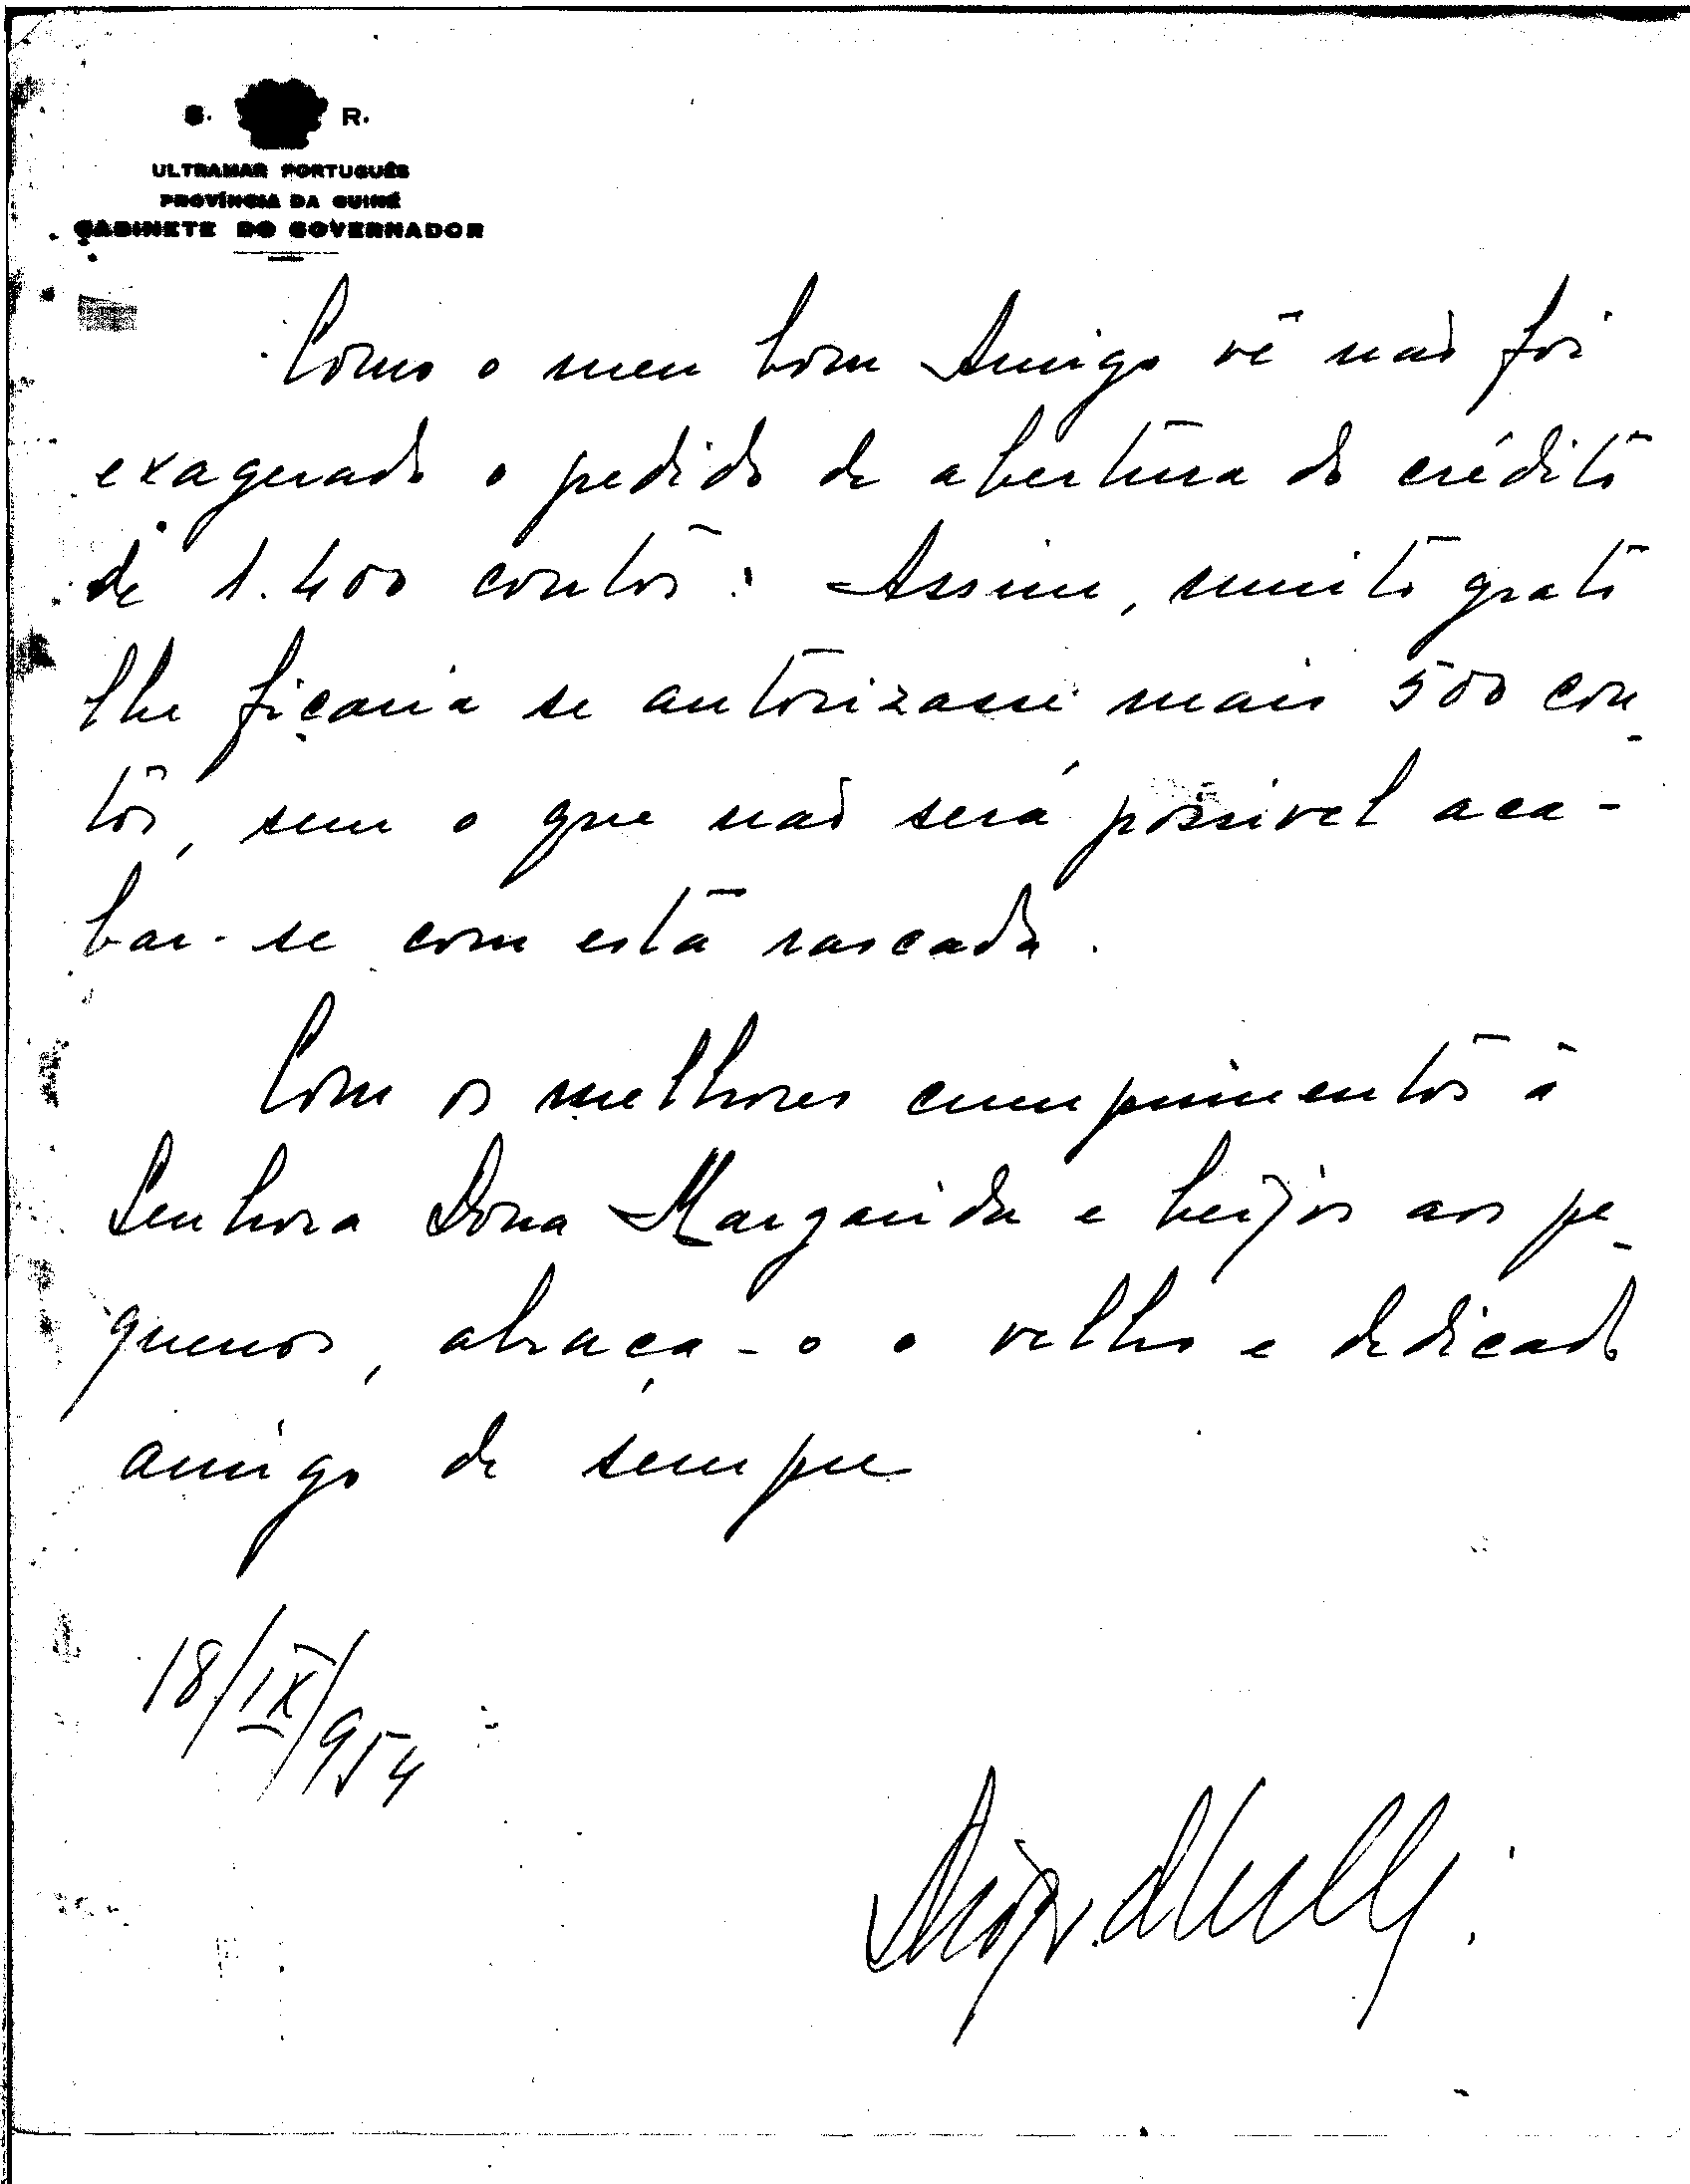 S. R.
ULTRAMAR PORTUGUÊS
PROVÍNCIA DA GUINÉ
GABINETE DO GOVERNADOR
Como o meu bom Amigo vê não foi
exagerado o pedido de abertura do crédito
de 1.400 contos: Assim, muito grato
lhe ficaria se autorizasse mais 500 con-
tos, sem o que não será possível aca-
bar-se com esta rascada.
Com os melhores cumprimentos à
Senhora Dona Margarida e beijos aos pe-
quenos, abraça-o o velho e dedicado
amigo de sempre
18/IX/954